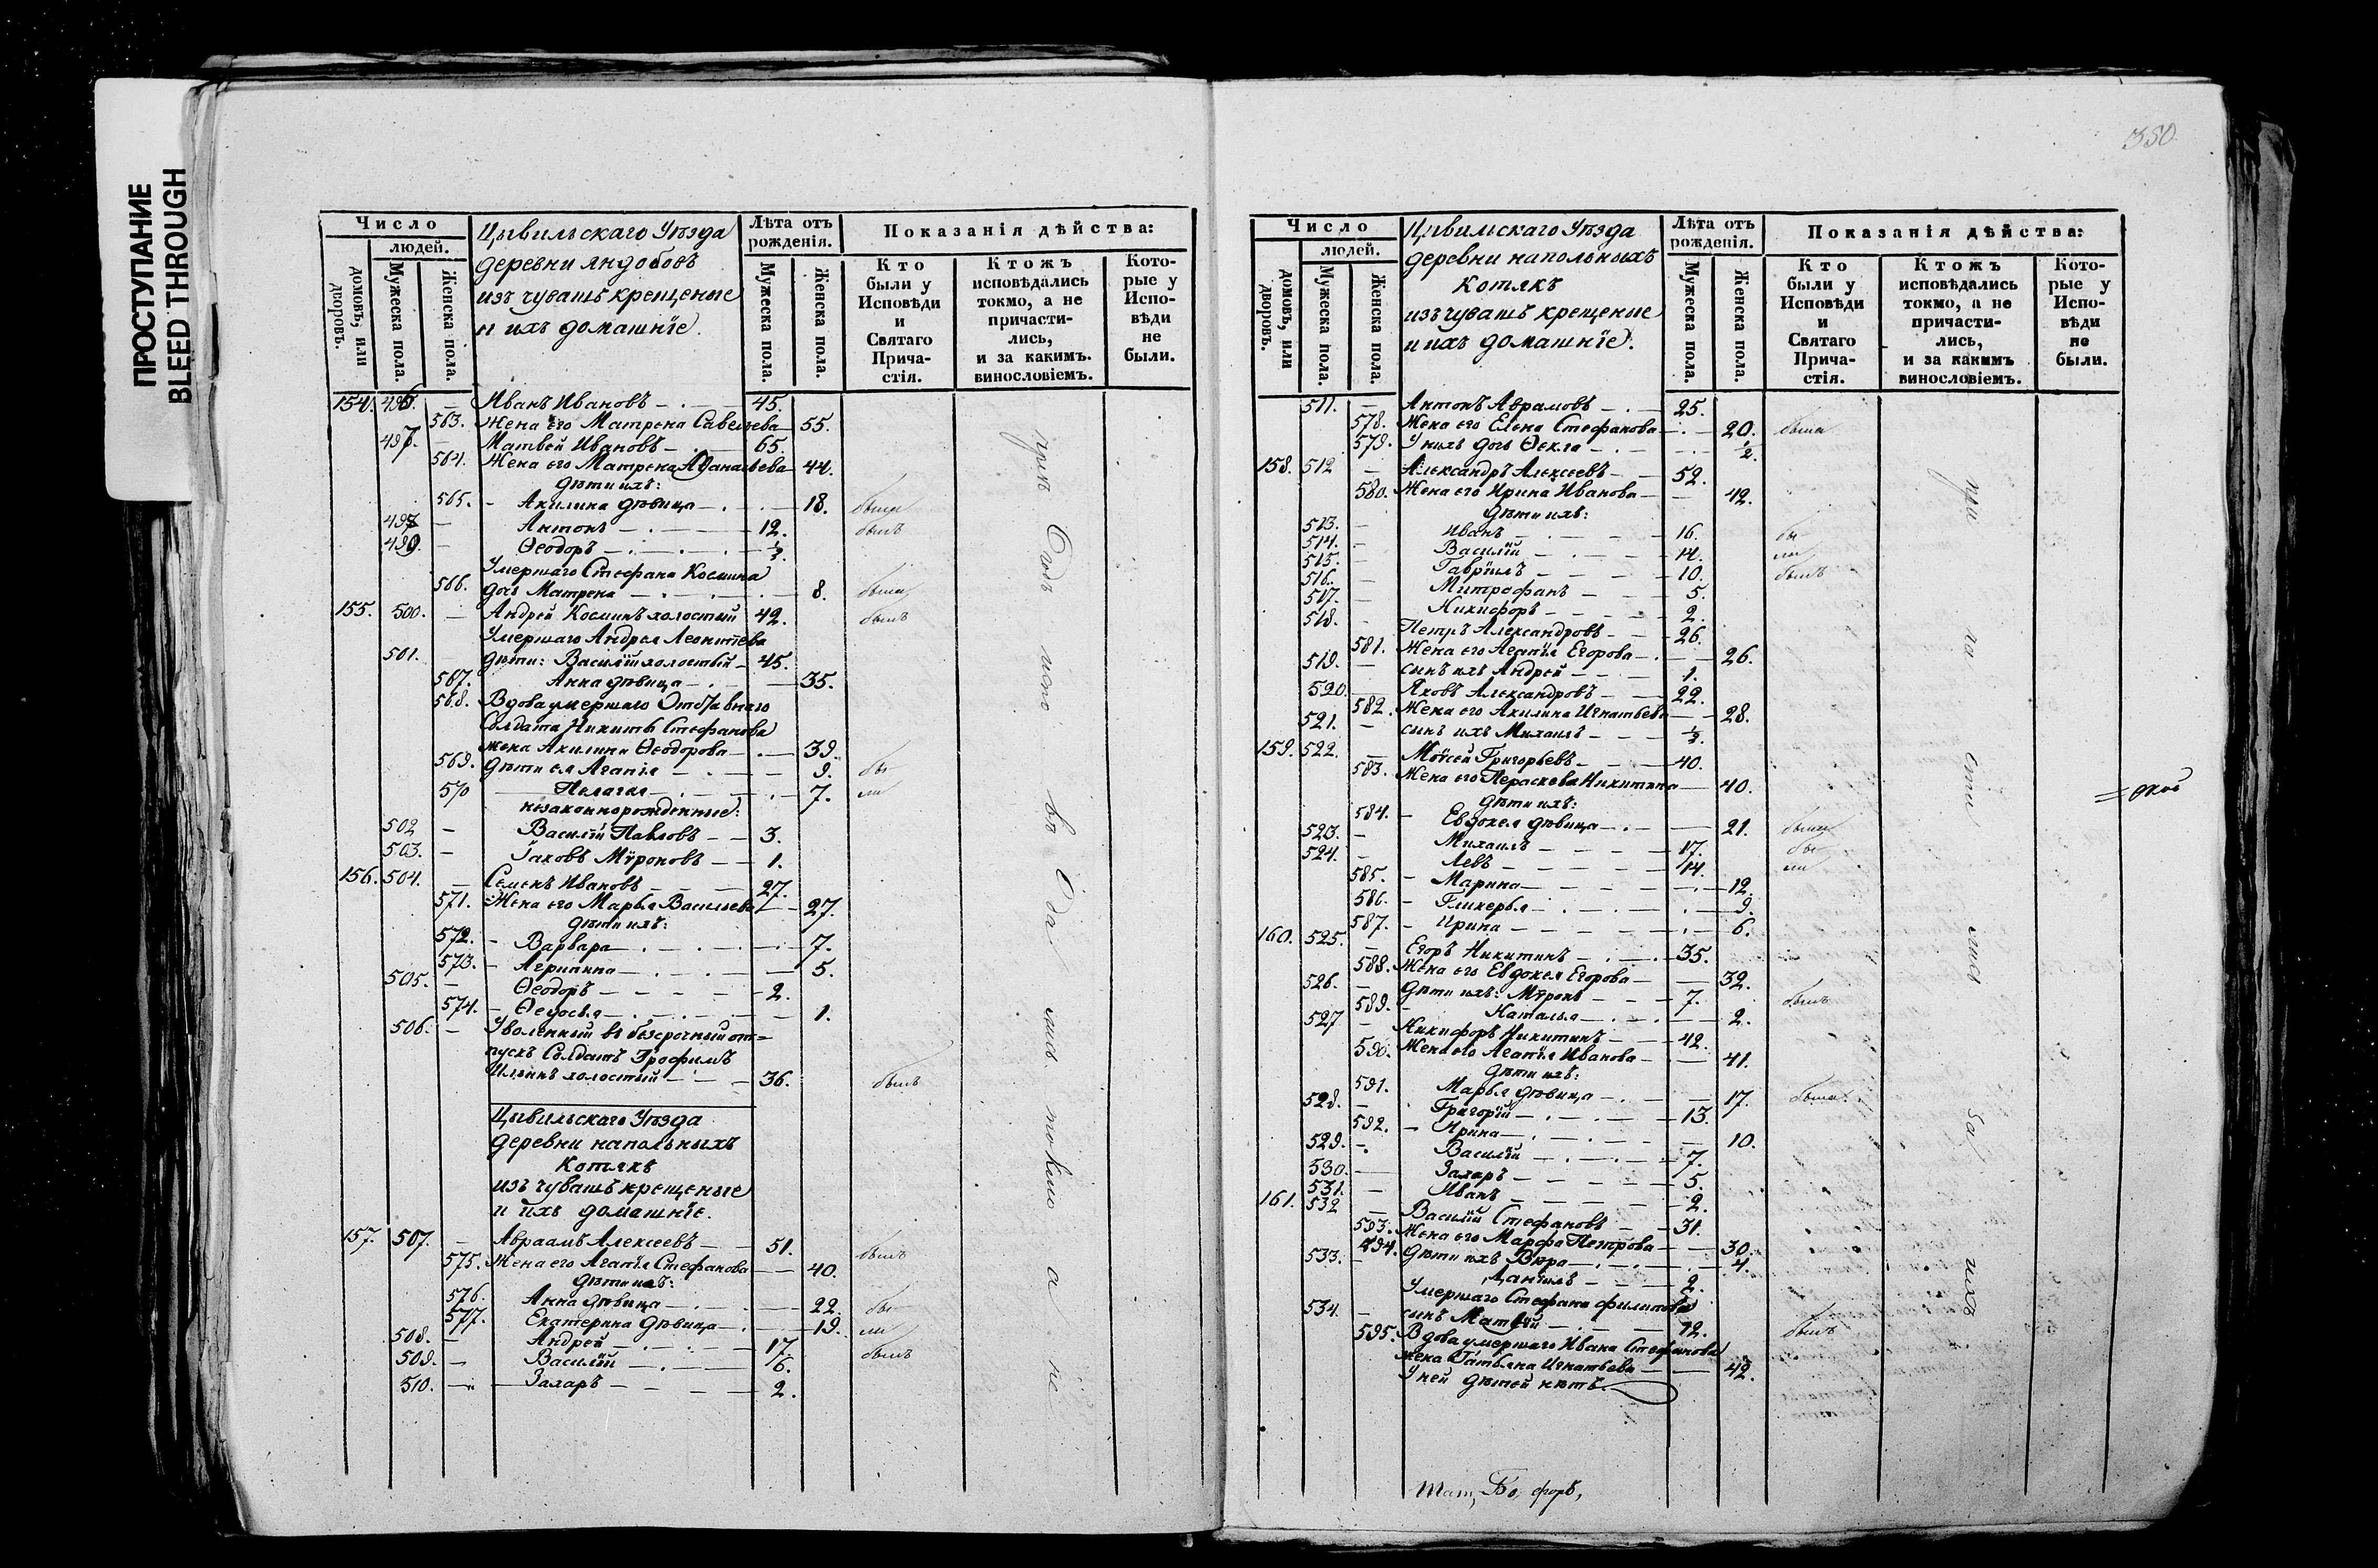 ПРОСТУПАНИЕ
BLEED THROUGH
350
Число
людей.
домовъ, или дворовъ.
Мужеска пола.
Женска пола.
Цывильскаго Уѣзда
деревни Яндобовъ
изъ чувашъ крещеные
и ихъ домашніе.
Лѣта отъ рожденія.
Мужеска пола.
Женска пола.
Показанія дѣйства:
Кто были у Исповѣди и Святаго Прича-стія.
Ктожъ исповѣдались токмо, а не причасти-лись, и за какимъ. винословіемъ.
Кото-рые у Испо-вѣди не были.
154. 496. — Иванъ Ивановъ — 45.
563. Жена его Матрена Савельева — 55.
497. — Матвей Ивановъ — 65.
564. Жена его Матрена Афанасьева 44.
дѣти ихъ:
565. — Акилина дѣвица — 18. была
498 — Антонъ — 12. былъ
499. — Ѳеодоръ — ½
Умершаго Стефана Космина
566. дочь Матрена — 8. была
155. 500. — Андрей Косминъ холостый 42. былъ
Умершаго Андрея Леонтіева
501. дѣти: Василій холостый — 45.
567. Анна дѣвица — 35.
568. Вдова умершаго Отставнаго
Солдата Никиты Стефанова
жена Акилина Ѳеодорова — 39.
569. дѣти ея Агапія — 9. бы
570 Пелагея — 7. ли
незаконнорожденные:
502 — Василій Павловъ — 3.
503. — Іаковъ Мѵроновъ — 1.
156. 504. — Семенъ Ивановъ — 27.
571. Жена его Марья Васильева — 27.
дѣти ихъ:
572. — Варвара — 7.
573. — Агрипина — 5.
505. — Ѳеодоръ — 2.
574. — Ѳедосья — 1.
506. — Уволенный въ безсрочный от=
пускъ Солдатъ Трофимъ
Ильинъ холостый — 36. былъ
Цывильскаго Уѣзда
деревни напольныхъ
Котякъ
изъ чувашъ крещеные
и ихъ домашніе.
157. 507. — Авраамъ Алексеевъ — 51. былъ
575. Жена его Агапія Стефанова — 40.
дѣти ихъ:
576. Анна дѣвица — 22. бы
577. Екатерина дѣвица — 19. ли
508. — Андрей — 17. былъ
509. — Василій — 6.
510. — Захаръ — 2.
Число
людей.
домовъ, или дворовъ.
Мужеска пола.
Женска пола.
Цивильскаго Уѣзда
деревни напольныхъ
Котякъ
изъ чувашъ крещеные
и ихъ домашніе.
Лѣта отъ рожденія.
Мужеска пола.
Женска пола.
Показанія дѣйства:
Кто были у Исповѣди и Святаго Прича-стія.
Ктожъ исповѣдались токмо, а не причасти-лись, и за какимъ винословіемъ.
Кото-рые у Испо-вѣди не были.
511. — Антонъ Аврамовъ — 25.
578. Жена его Елена Стефанова — 20. была
579. У нихъ дочь Ѳекла — ½.
158. 512 — Александръ Алексеевъ — 52.
580. Жена его Ирина Иванова — 42.
дѣти ихъ:
513. — Иванъ — 16. бы
514. — Василій — 14. ли
515. — Гавріилъ — 10. былъ
516. — Митрофанъ — 5.
517. — Никифоръ — 2.
518. — Петръ Александровъ — 26.
581. Жена его Агапія Егорова — 26.
519. — сынъ ихъ Андрей — 1.
520. — Яковъ Александровъ — 22.
582. Жена его Акилина Игнатьева — 28.
521. — сынъ ихъ Михаилъ — ½.
159. 522. — Моѵсей Григорьевъ — 40.
583. Жена его Параскева Никитина — 40.
дѣти ихъ:
584. — Евдокея дѣвица — 21. была
523. — Михаилъ — 17. бы
524. — Левъ — 14. ли
585. — Марина — 12.
586. — Гликерья — 9.
587. — Ирина — 6.
160. 525. — Егоръ Никитинъ — 35.
588. Жена его Евдокея Егорова — 32.
526. — дѣти ихъ: Мѵронъ — 7. былъ
589. — Наталья — 2.
527 — Никифоръ Никитинъ — 42.
590. Жена его Агапія Иванова — 41.
дѣти ихъ:
591. Марья дѣвица — 17. была
528. — Григорій — 13.
592. — Ирина — 10.
529. — Василій — 7.
530. — Захаръ — 5.
531. — Иванъ — 2.
161. 532 — Василій Стефановъ — 31.
593. Жена его Марфа Петрова — 30.
594. дѣти ихъ Вѣра — 4.
533. — Даніилъ — 2.
Умершаго Стефана Филипова
534. — сынъ Матвей — 12. былъ
595. Вдова умершаго Ивана Стефанова
жена Татьяна Игнатьева — 42.
У ней дѣтей нѣтъ.